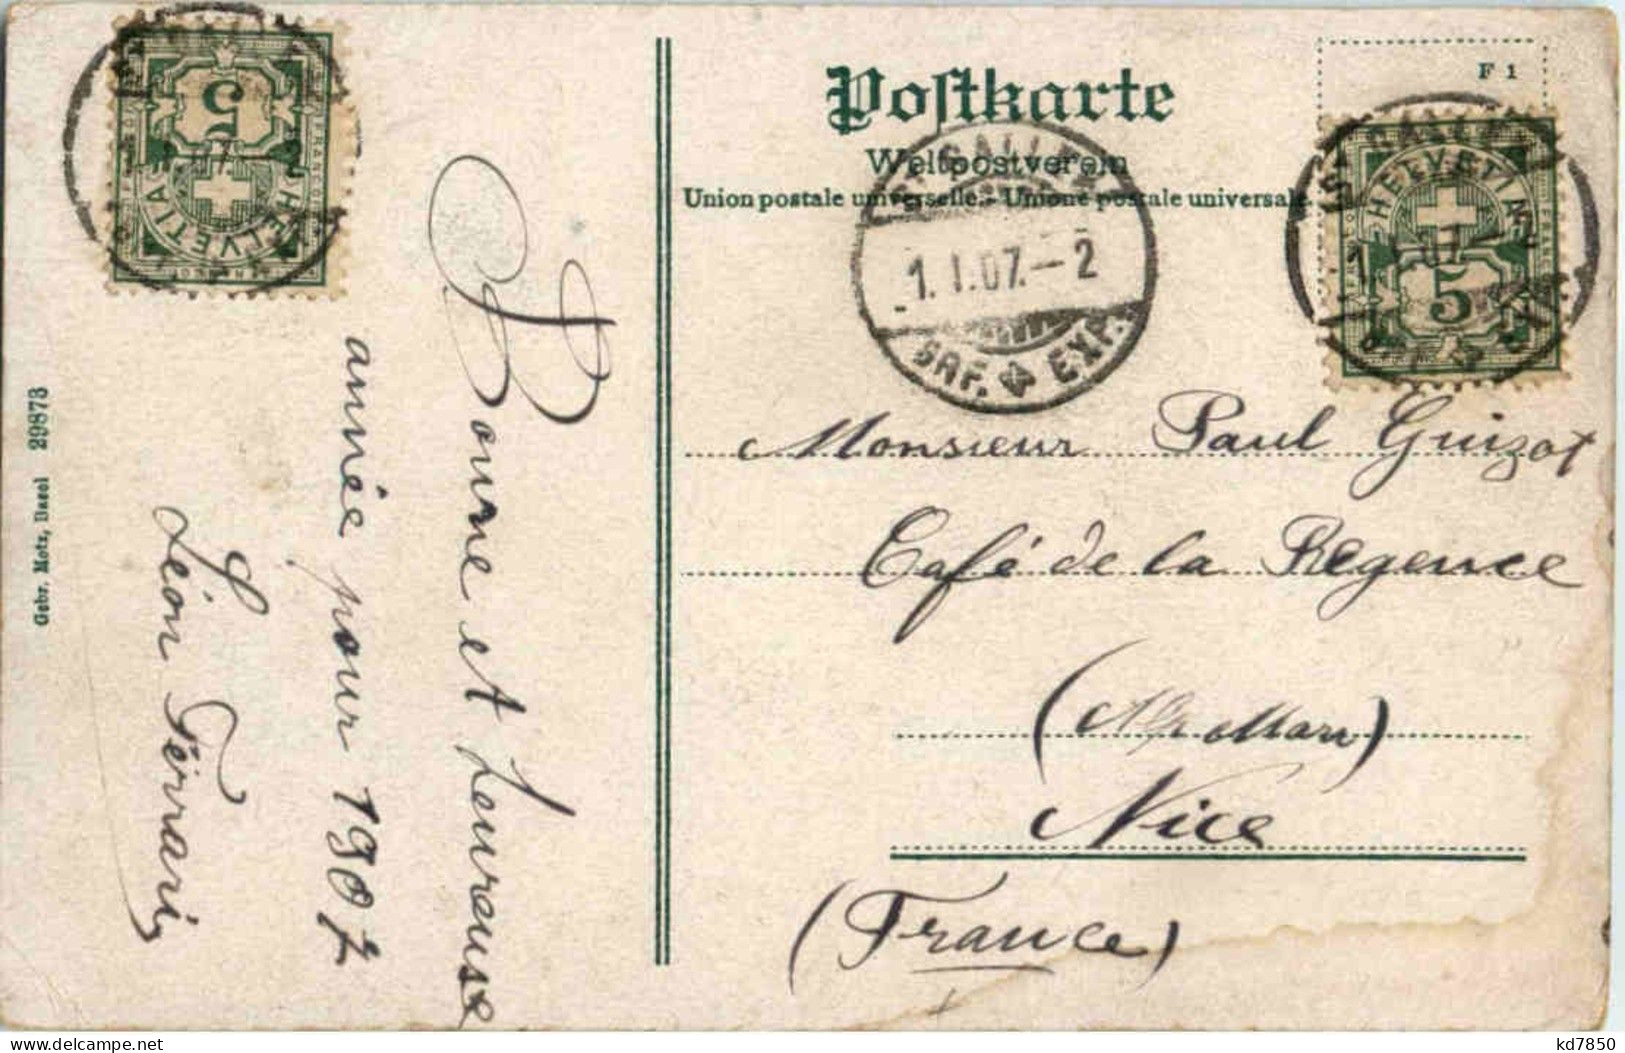 Postkarte
Weltpostverein
Union postale universelle. - Unione postale universale.
F 1
HELVETIA
5
HELVETIA
5
ST. GALLEN
1. I. 07. — 2
BRF. EXP.
Bonne et heureuse
année pour 1907
Léon Ferrari
Monsieur Paul Guizot
Café de la Regence
(Alp Mari)
Nice
(France)
Gebr. Metz, Basel 29873
kd7850